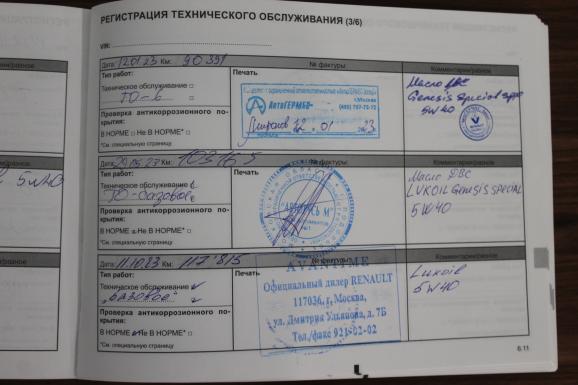 РЕГИСТРАЦИЯ ТЕХНИЧЕСКОГО ОБСЛУЖИВАНИЯ (3/6)
VIN:
Дата: 12.01.23 Км: 90391
№ фактуры
Комментарии/разное
Тип работ:
Печать
Техническое обслуживание □
ТО-6
АвтоГЕРМЕС
г.Москва
22 01 23
Масло ДВС
Genesis Special
5W40
Проверка антикоррозионного покрытия:
В НОРМЕ □ Не В НОРМЕ* □
*См. специальную страницу
Дата: 29.05.23 Км: 103165
№ фактуры
Комментарии/разное
Тип работ:
Печать
Техническое обслуживание
ТО-базовое
Масло ДВС
LUKOIL Genesis SPECIAL
5W40
5W40
Проверка антикоррозионного покрытия:
В НОРМЕ □ Не В НОРМЕ* □
*См. специальную страницу
Дата: 11.10.23 Км: 117815
№ фактуры
Комментарии/разное
Тип работ:
Печать
Техническое обслуживание
"Базовое"
AVANTIME
Официальный дилер RENAULT
117036, г. Москва,
ул. Дмитрия Ульянова, д. 7Б
Тел./факс 921-02-02
Lukoil
5W40
Проверка антикоррозионного покрытия:
В НОРМЕ Не В НОРМЕ* □
*См. специальную страницу
6.11